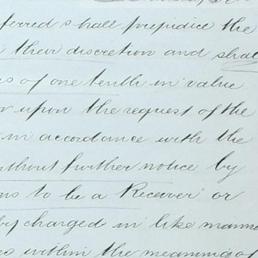 ferred shall prejudice the
their discretion and shall
es of one tenth in value
or upon the request of the
in accordance with the
without further notice by
ns to be a Receiver or
by charged in like manne
es within the meaning of